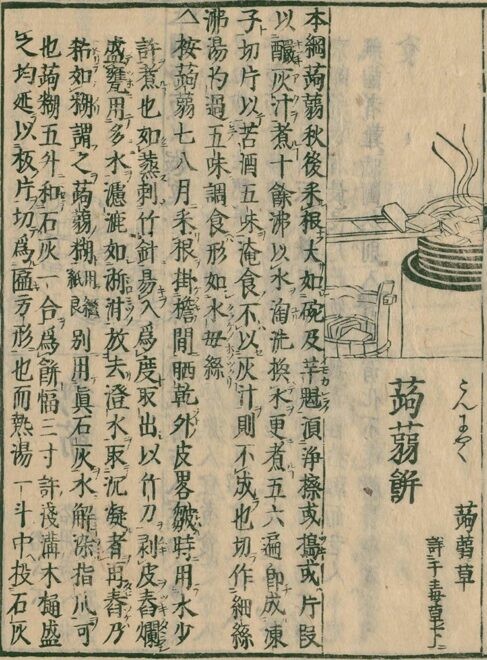 蒟蒻餅
こんにやく
蒟蒻草
詳于毒草下
本綱蒟蒻秋後采根大如碗及芋魁湏浄擦或搗或片段
以釅灰汁煮十餘沸以水淘洗換水更煮五六遍即成凍
子切片以苦酒五味淹食不以灰汁則不成也切作細絲
沸湯汋過五味調食形如水母絲
△按蒟蒻七八月采根掛檐間晒乾外皮畧皺時用水少
許煮也如蒸刺竹針易入爲度取出以竹刀剥皮舂爛
盛甕用多水濾漉如淅泔放去澄水取沉凝者再舂乃
粘如糊謂之蒟蒻糊別用眞石灰水解涂指爪可
也蒟糊五升和石灰一合爲餅幅三寸許淺溝木樋盛
之均延以板片切爲匾方形也而熱湯一斗中投石灰